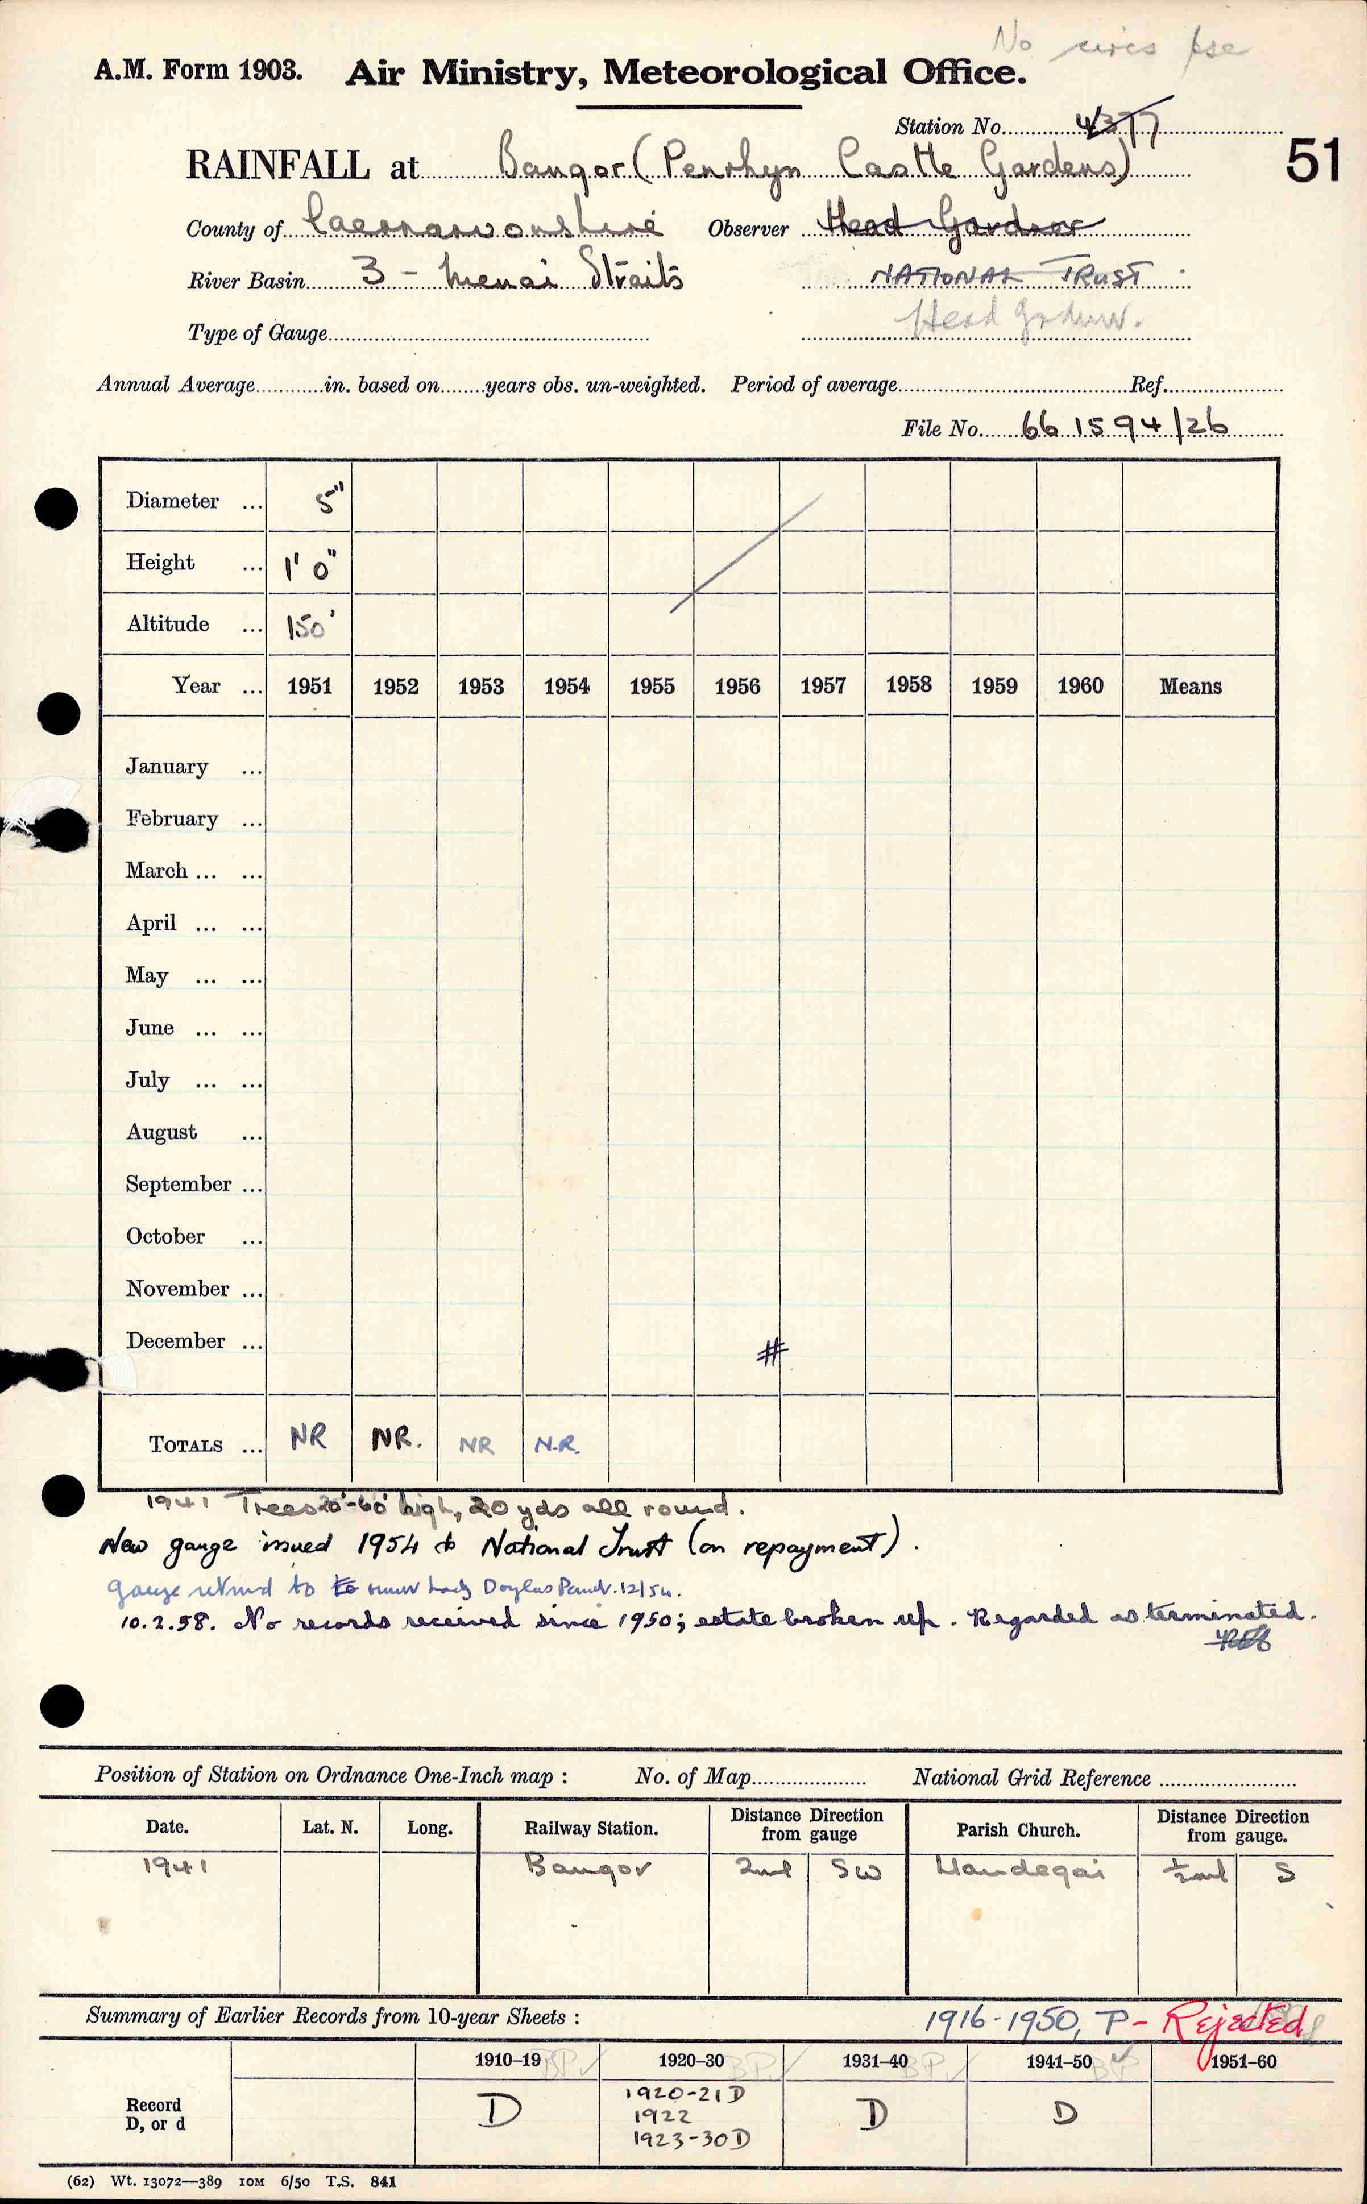 No
A.M. Form 1903. Air Ministry, Meteorological Office.
Station No. 4377
RAINFALL at Bangor (Penrhyn Castle Gardens) 51
County of Caernarvonshire Observer Head Gardner
River Basin 3 - Menai Straits NATIONAL TRUST
Type of Gauge Head Gardner.
Annual Average in. based on years obs. un-weighted. Period of average Ref.
File No. 661594/26
Diameter ... 5"
Height ... 1' 0"
Altitude ... 150'
Year ... 1951 1952 1953 1954 1955 1956 1957 1958 1959 1960 Means
January ...
February ...
March ... ...
April ... ...
May ... ...
June ... ...
July ... ...
August ...
September ...
October ...
November ...
December ... #
TOTALS ... NR NR. NR N.R.
1941 Trees 20'-60' high, 20 yds all round.
New gauge issued 1954 to National Trust (on repayment).
gauge to to Lady Douglas 12/54.
10.2.58. No records received since 1950; estate broken up. Regarded as terminated.
Position of Station on Ordnance One-Inch map : No. of Map National Grid Reference
Date. Lat. N. Long. Railway Station. Distance Direction from gauge Parish Church. Distance Direction from gauge.
1941 Bangor 2ml SW Llandegai ½ml S
Summary of Earlier Records from 10-year Sheets : 1916-1950, P - Rejected
1910–19 BP 1920–30 BP 1931–40 BP 1941–50 BP 1951–60
Record D, or d D 1920-21 D D D
1922
1923-30 D
(62) Wt. 13072—389 10M 6/50 T.S. 841